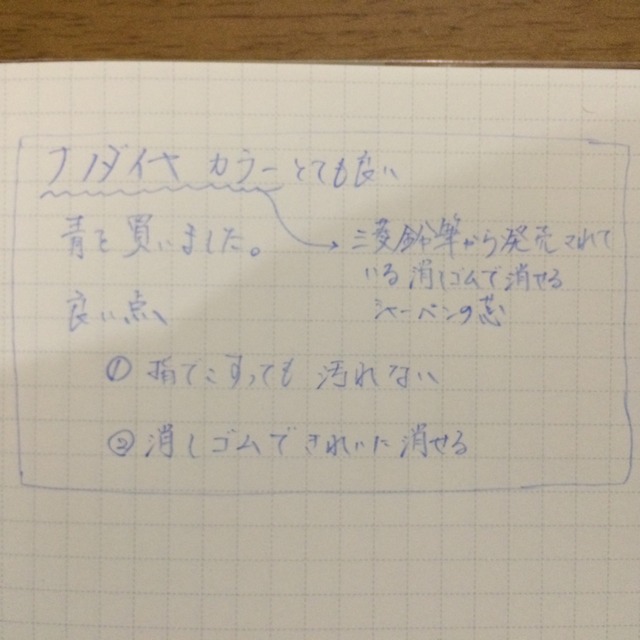 ナノダイヤ カラー とても良い
青を買いました。
→三菱鉛筆から発売されて
いる消しゴムで消せる
シャーペンの芯
良い点
① 指でこすっても汚れない
② 消しゴムできれいに消せる